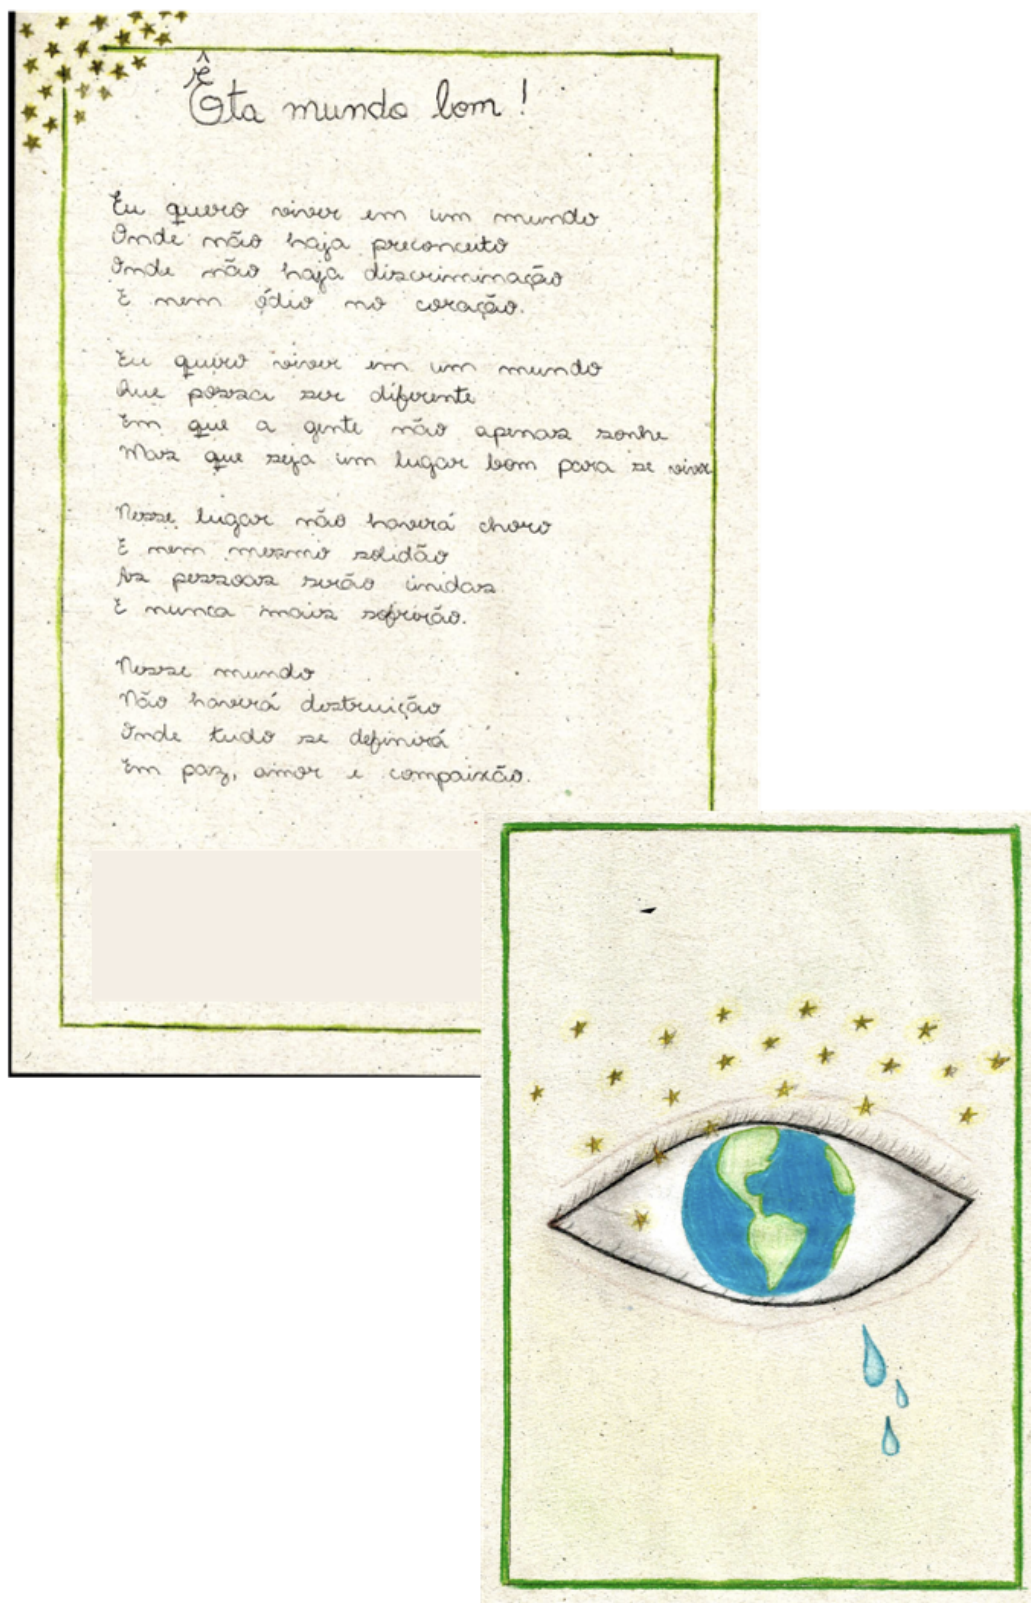 Êta mundo bom!
Eu quero viver em um mundo
Onde não haja preconceito
Onde não haja discriminação
E nem ódio no coração.
Eu quero viver em um mundo
Que possa ser diferente
Em que a gente não apenas sonhe
Mas que seja um lugar bom para se viver
Nesse lugar não haverá choro
E nem mesmo solidão
As pessoas serão unidas
E nunca mais sofrerão.
Nesse mundo
Não haverá destruição
Onde tudo se definirá
Em paz, amor e compaixão.